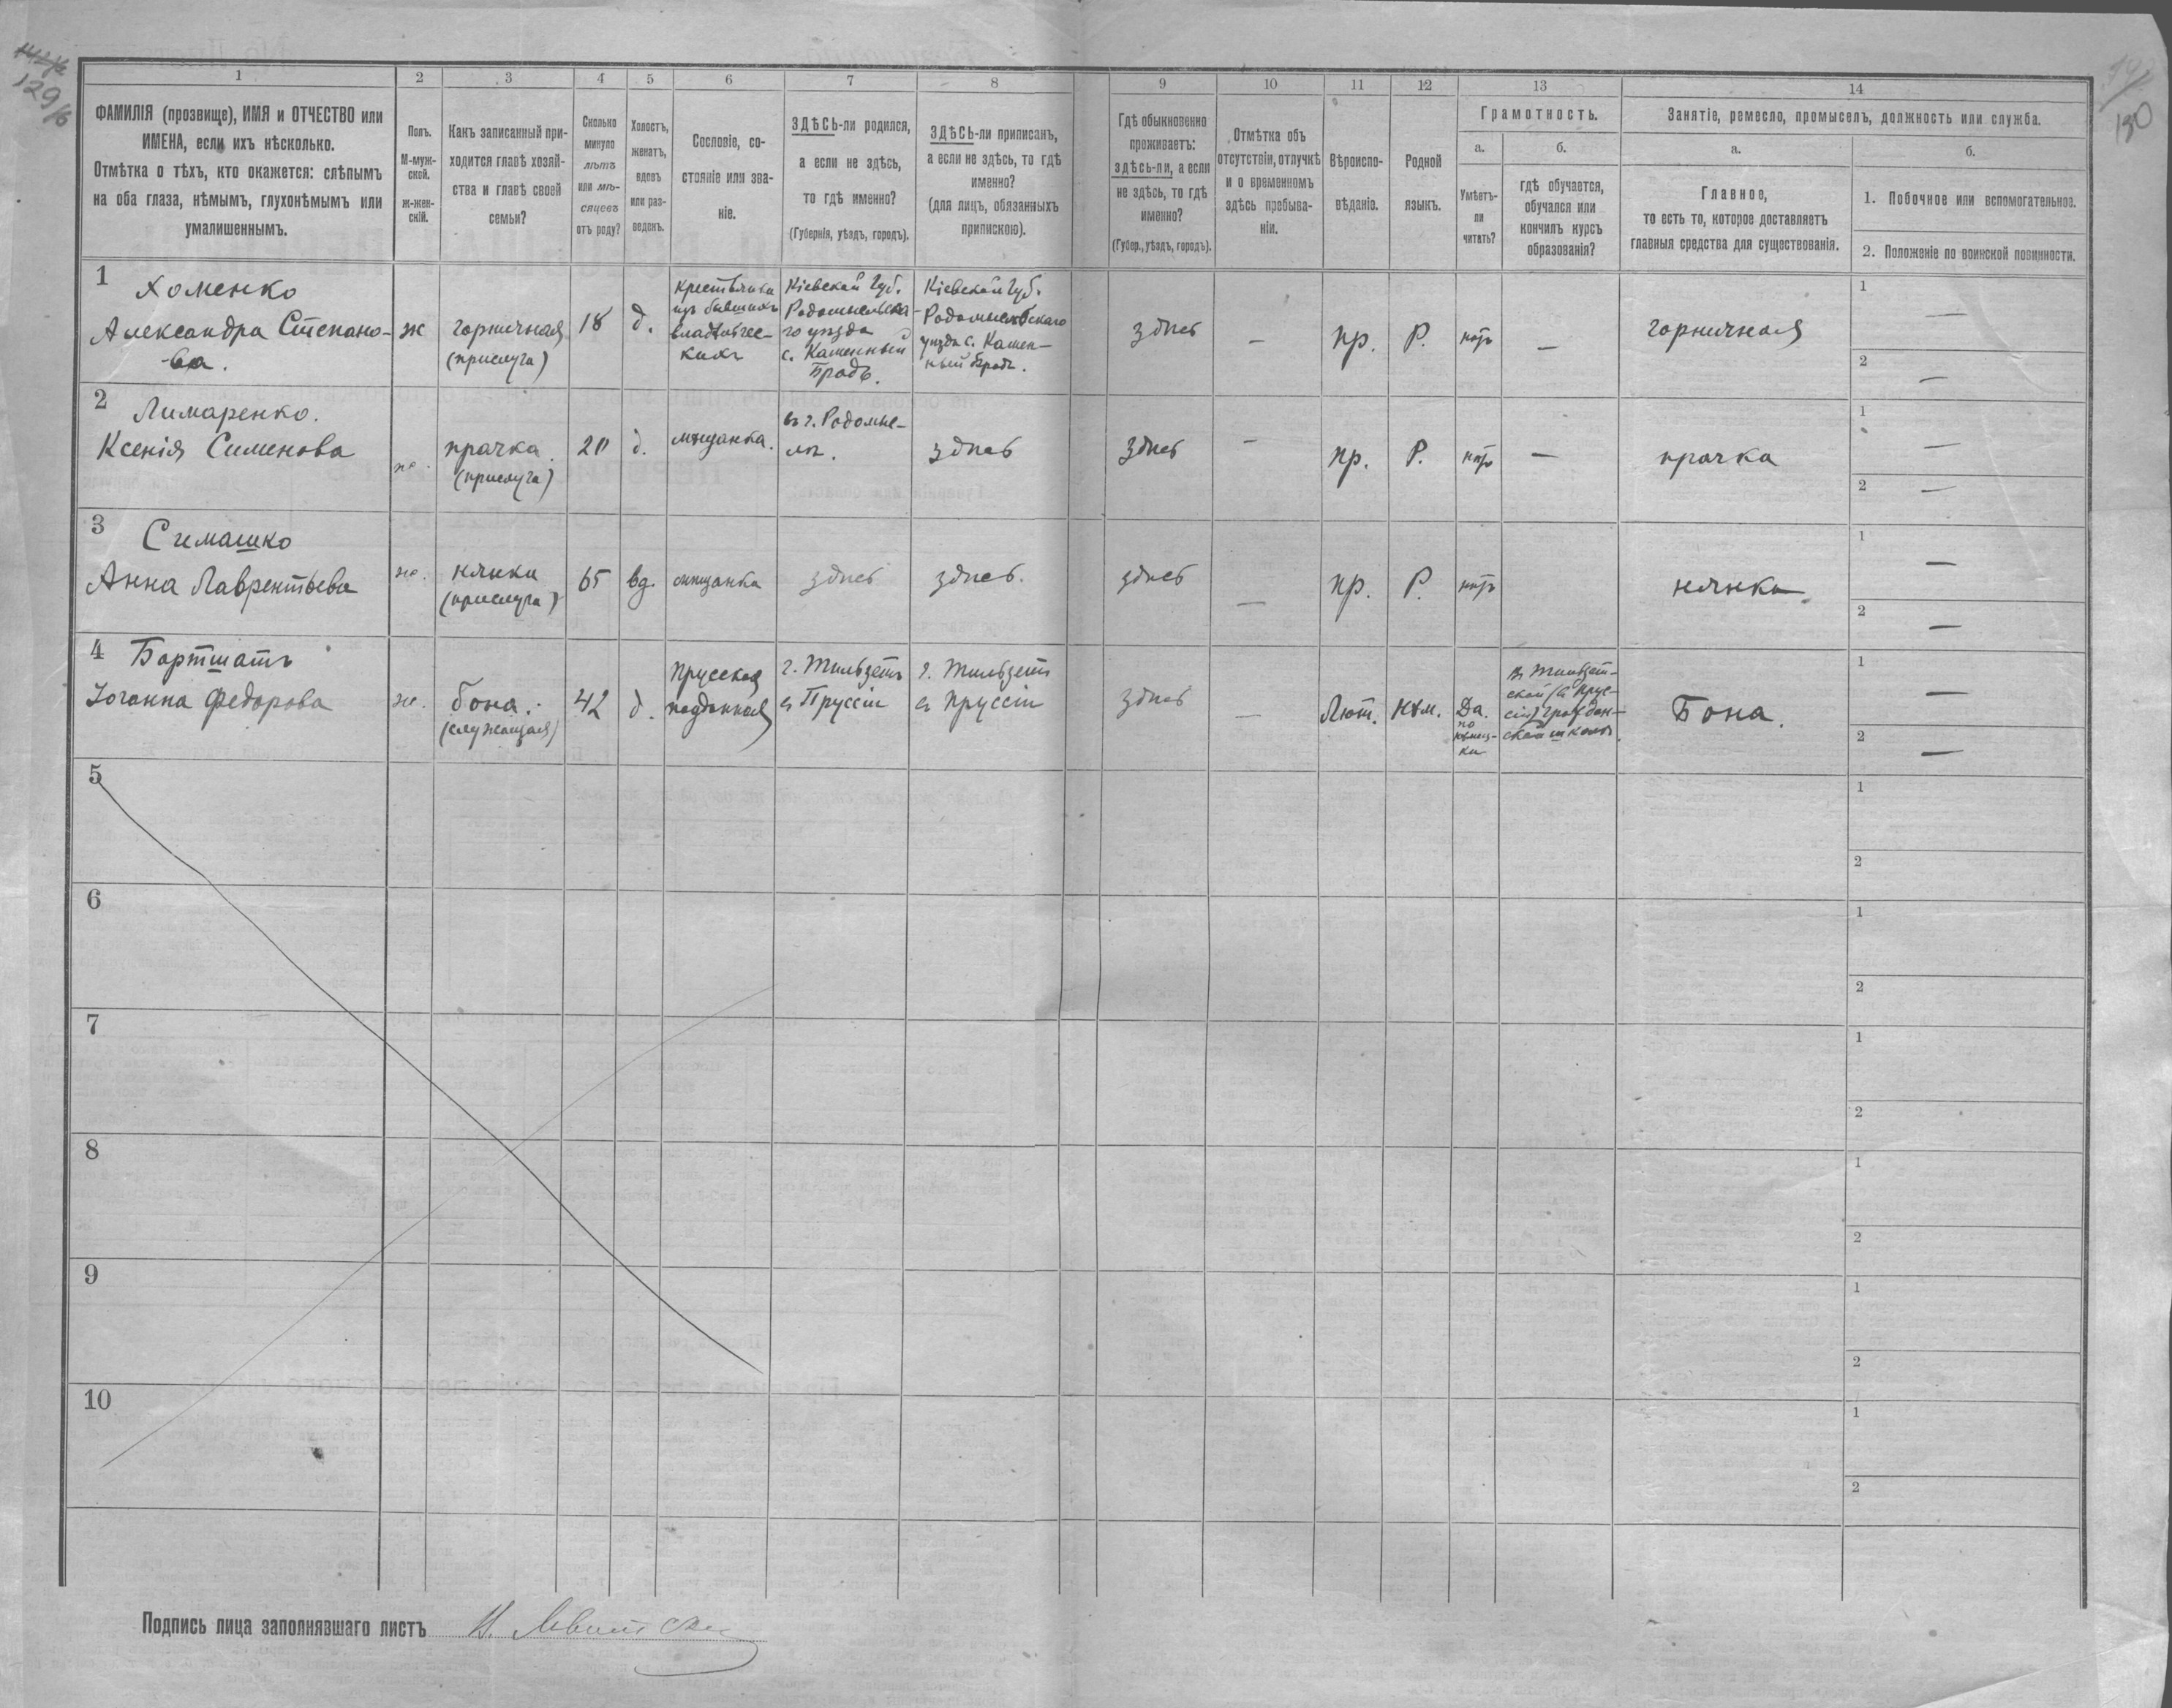 129/б
130
1 2 3 4 5 6 7 8 9 10 11 12 13 14
ФАМИЛІЯ (прозвище), ИМЯ и ОТЧЕСТВО или
ИМЕНА, если ихъ нѣсколько.
Отмѣтка о тѣхъ, кто окажется: слѣпымъ
на оба глаза, нѣмымъ, глухонѣмымъ или
умалишеннымъ.
Полъ.
М-муж-
ской.
ж-жен-
скій.
Какъ записанный при-
ходится главѣ хозяй-
ства и главѣ своей
семьи?
Сколько
минуло
лѣтъ
или мѣ-
сяцевъ
отъ роду?
Холостъ,
женатъ,
вдовъ
или раз-
веденъ.
Сословіе, со-
стояніе или зва-
ніе.
ЗДѢСЬ-ли родился,
а если не здѣсь,
то гдѣ именно?
(Губернія, уѣздъ, городъ).
ЗДѢСЬ-ли приписанъ,
а если не здѣсь, то гдѣ
именно?
(для лицъ, обязанныхъ
припискою).
Гдѣ обыкновенно
проживаетъ:
здѣсь-ли, а если
не здѣсь, то гдѣ
именно?
(Губер., уѣздъ, городъ).
Отмѣтка объ
отсутствіи, отлучкѣ
и о временномъ
здѣсь пребыва-
ніи.
Вѣроиспо-
вѣданіе.
Родной
языкъ.
Грамотность.
а.
Умѣетъ-
ли
читать?
б.
гдѣ обучается,
обучался или
кончилъ курсъ
образованія?
Занятіе, ремесло, промыселъ, должность или служба.
а.
Главное,
то есть то, которое доставляетъ
главныя средства для существованія.
б.
1. Побочное или вспомогательное.
2. Положеніе по воинской повинности.
1
Хоменко
Александра Степано-
ва.
ж
горничная
(прислуга)
18
д.
крестьянка
изъ бывшихъ
владѣльчес-
кихъ
Кіевской Губ.
Радомысльска-
го уѣзда
с. Каменный
Бродъ.
Кіевской Губ.
Радомысльскаго
уѣзда с. Камен-
ный Бродъ.
здѣсь
—
пр.
Р.
нѣтъ
—
горничная
1 —
2 —
2
Лимаренко.
Ксенія Сименова
ж.
прачка.
(прислуга)
20
д.
мѣщанка.
въ г. Радомыс-
лѣ.
здѣсь
здѣсь
—
пр.
Р.
нѣтъ
—
прачка
1 —
2 —
3
Симашко
Анна Лаврентьева
ж.
нянька
(прислуга)
65
вд.
мѣщанка
здѣсь
здѣсь.
здѣсь
—
пр.
Р.
нѣтъ
нянька
1 —
2 —
4
Бартшатъ
Іоганна Федорова
ж.
бона.
(служащая)
42
д.
Прусская
подданная
г. Тильзетъ
въ Пруссіи
г. Тильзетъ
въ Пруссіи
здѣсь
—
Лют.
нѣм.
Да.
по
нѣмец-
ки
Въ Тильзет-
ской (въ Прус-
сіи) граждан-
ской школѣ.
Бона.
1 —
2 —
5
1
2
6
1
2
7
1
2
8
1
2
9
1
2
10
1
2
Подпись лица заполнявшаго листъ